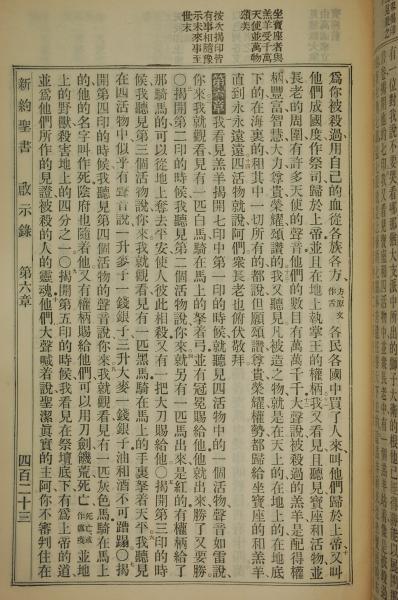 坐寶座者與
羔羊受千萬
天使並萬物
頌美
按次揭印皆
有事相隨像
示未來事至
世末
爲你被殺過用自己的血從各族各方方原文作舌各民各國中買了人來叫他們歸於上帝又叫
他們成國度作祭司歸於上帝並且在地上執掌王的權柄我又看見且聽見寶座和活物並
長老的周圍有許多天使的聲音他們的數目有萬萬千千大聲說被殺過的羔羊是配得權
柄豐富智慧大力尊貴榮耀頌讚的我又聽見凡被造之物就是在天上的在地上的在地底
下的在海裏的和其中一切所有的都說但願頌讚尊貴榮耀權勢都歸給坐寶座的和羔羊
直到永永遠遠四活物就說阿們衆長老也俯伏敬拜
第六章我看見羔羊揭開七印中第一印的時候就聽見四活物中的一個活物聲音如雷說
你來我就觀看見有一匹白馬騎在馬上的拏着弓並有冠冕賜給他他就出來勝了又要勝
○揭開第二印的時候我聽見第二個活物說你來就另有一匹馬出來是紅的有權柄給了
那騎馬的可以從地上奪去平安使人彼此相殺又有一把大刀賜給他○揭開第三印的時
候我聽見第三個活物說你來我就觀看見有一匹黑馬騎在馬上的手裏拏着天平我聽見
在四活物中似乎有聲音說一升麥子一錢銀子三升大麥一錢銀子油和酒不可蹧蹋○揭
開第四印的時候我聽見第四個活物的聲音說你來我就觀看見有一匹灰色馬騎在馬上
的他的名字叫作死陰府也隨着他又有權柄賜給他們可以用刀劍饑荒死亡死亡或作瘟疫並地
上的野獸殺害地上的四分之一○揭開第五印的時候我看見在祭壇底下有爲上帝的道
並爲他們所作的見證被殺的人的靈魂他們大聲喊着說聖潔真實的主阿你不審判住在
新約聖書 啟示錄 第六章 四百二十三